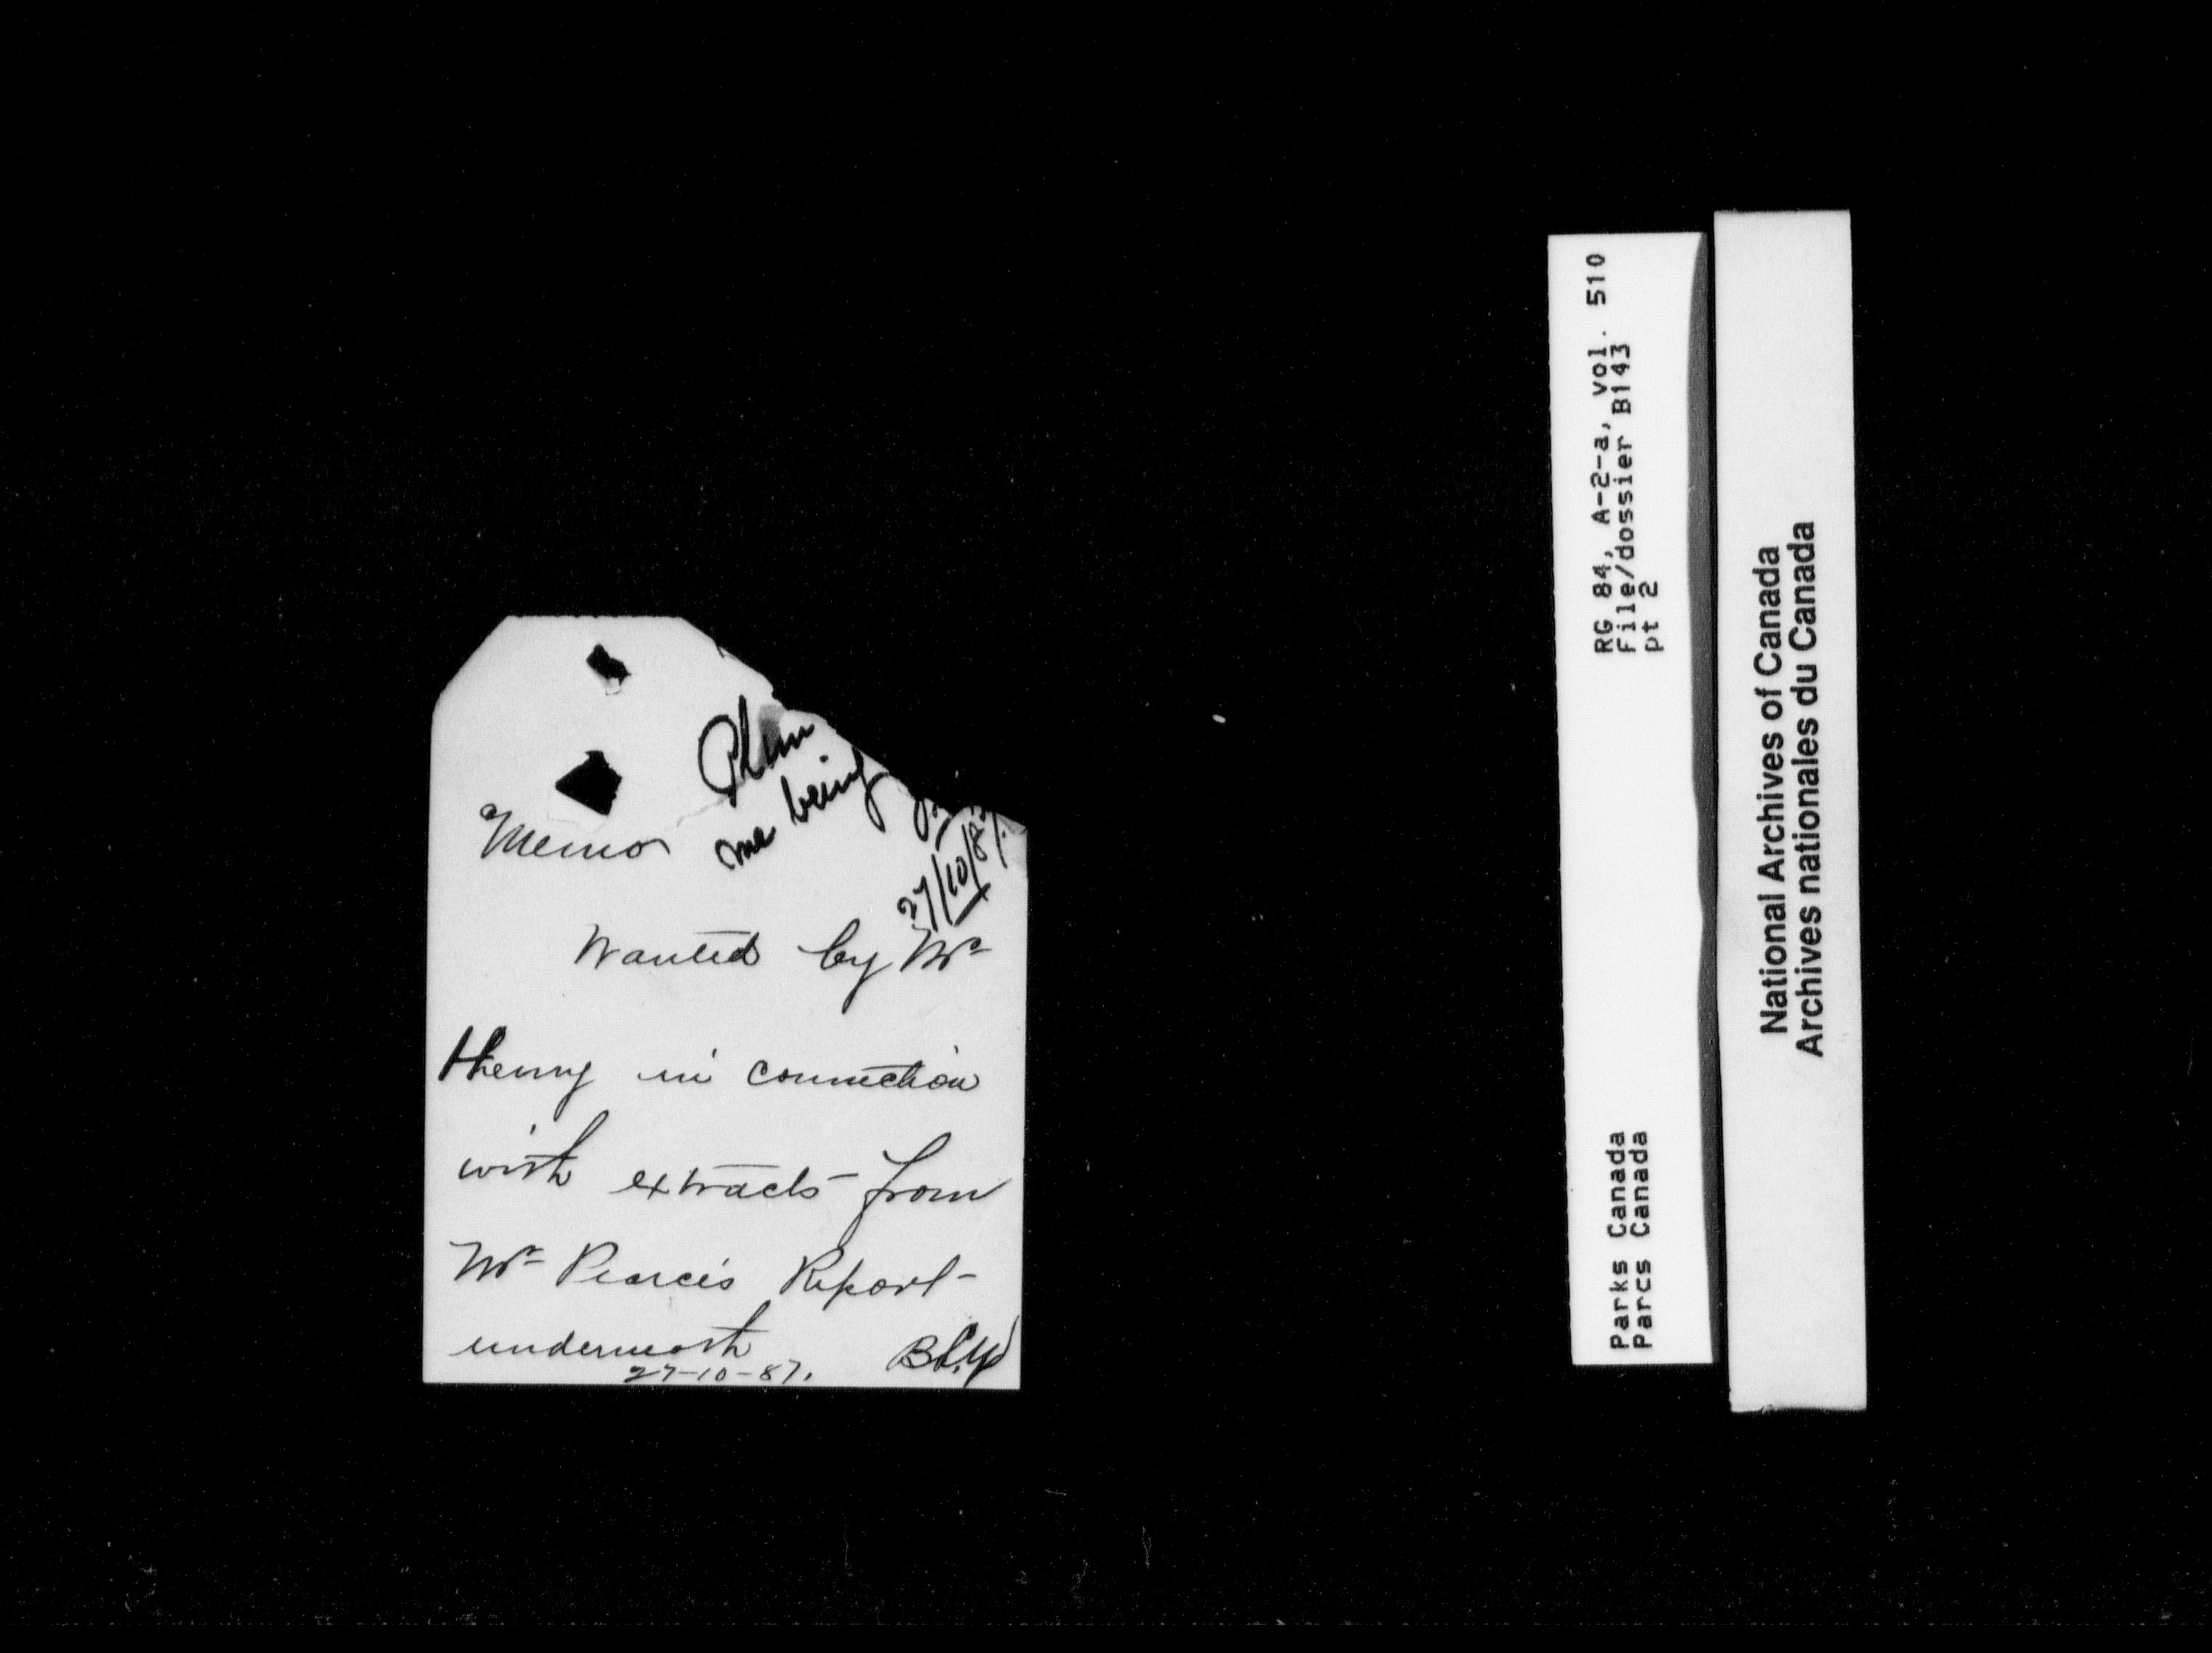 Memo
Plan
me being
27/10/87.
Wanted by Mr
Henry in connection
with extracts from
Mr Pearce's Report
undermost
27-10-87.
RG 84, A-2-a, vol. 510
File/dossier B143
pt 2
Parks Canada
Parcs Canada
National Archives of Canada
Archives nationales du Canada